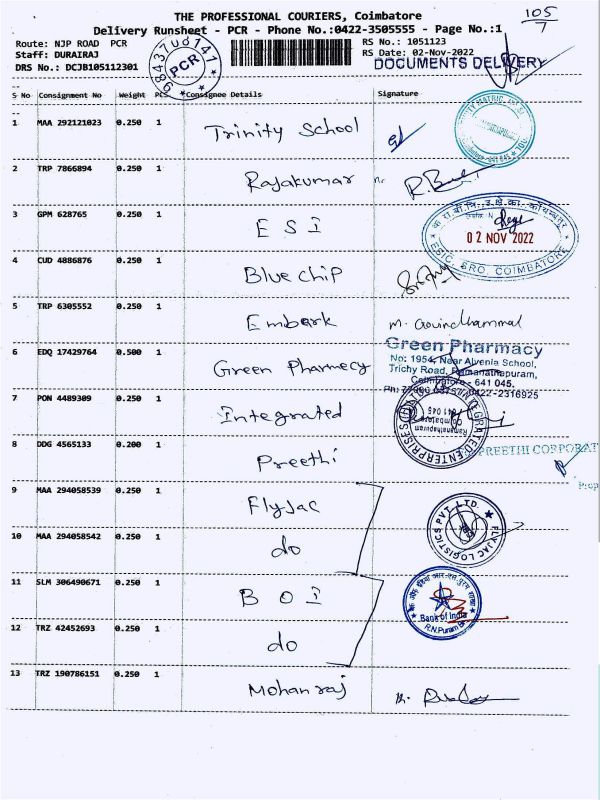 THE PROFESSIONAL COURIERS, Coimbatore
105
7
Delivery Runsheet - PCR - Phone No.:0422-3505555 - Page No.:1
Route: NJP ROAD PCR
RS No.: 1051123
Staff: DURAIRAJ
RS Date: 02-Nov-2022
DRS No.: DCJB105112301
DOCUMENTS DELIVERY
9843708741
PCR
S No Consignment No Weight PCS Consignee Details Signature
1 MAA 292121023 0.250 1 Trinity School
2 TRP 7866894 0.250 1 Rajakumar
3 GPM 628765 0.250 1 E S I
02 NOV 2022
ESIC, SRO, COIMBATORE
4 CUD 4886876 0.250 1 Blue chip
5 TRP 6305552 0.250 1 Embark M. Govindhammal
6 EDQ 17429764 0.500 1 Green Pharmecy
Green Pharmacy
No: 1954, Near Alvenia School,
Trichy Road, Ramanathapuram,
Coimbatore - 641 045.
0422-2316925
7 PON 4489309 0.250 1 Integrated
INTEGRATED ENTERPRISES
Ramanathapuram
Coimbatore
641 045
8 DDG 4565133 0.200 1 Preethi
PREETHI CORPORAT
Prop
9 MAA 294058539 0.250 1 Flyjac
10 MAA 294058542 0.250 1 do
FLYJAC LOGISTICS PVT. LTD.
11 SLM 306490671 0.250 1 B O I
Bank of India
R.N.Puram Br
12 TRZ 42452693 0.250 1 do
13 TRZ 190786151 0.250 1 Mohanraj